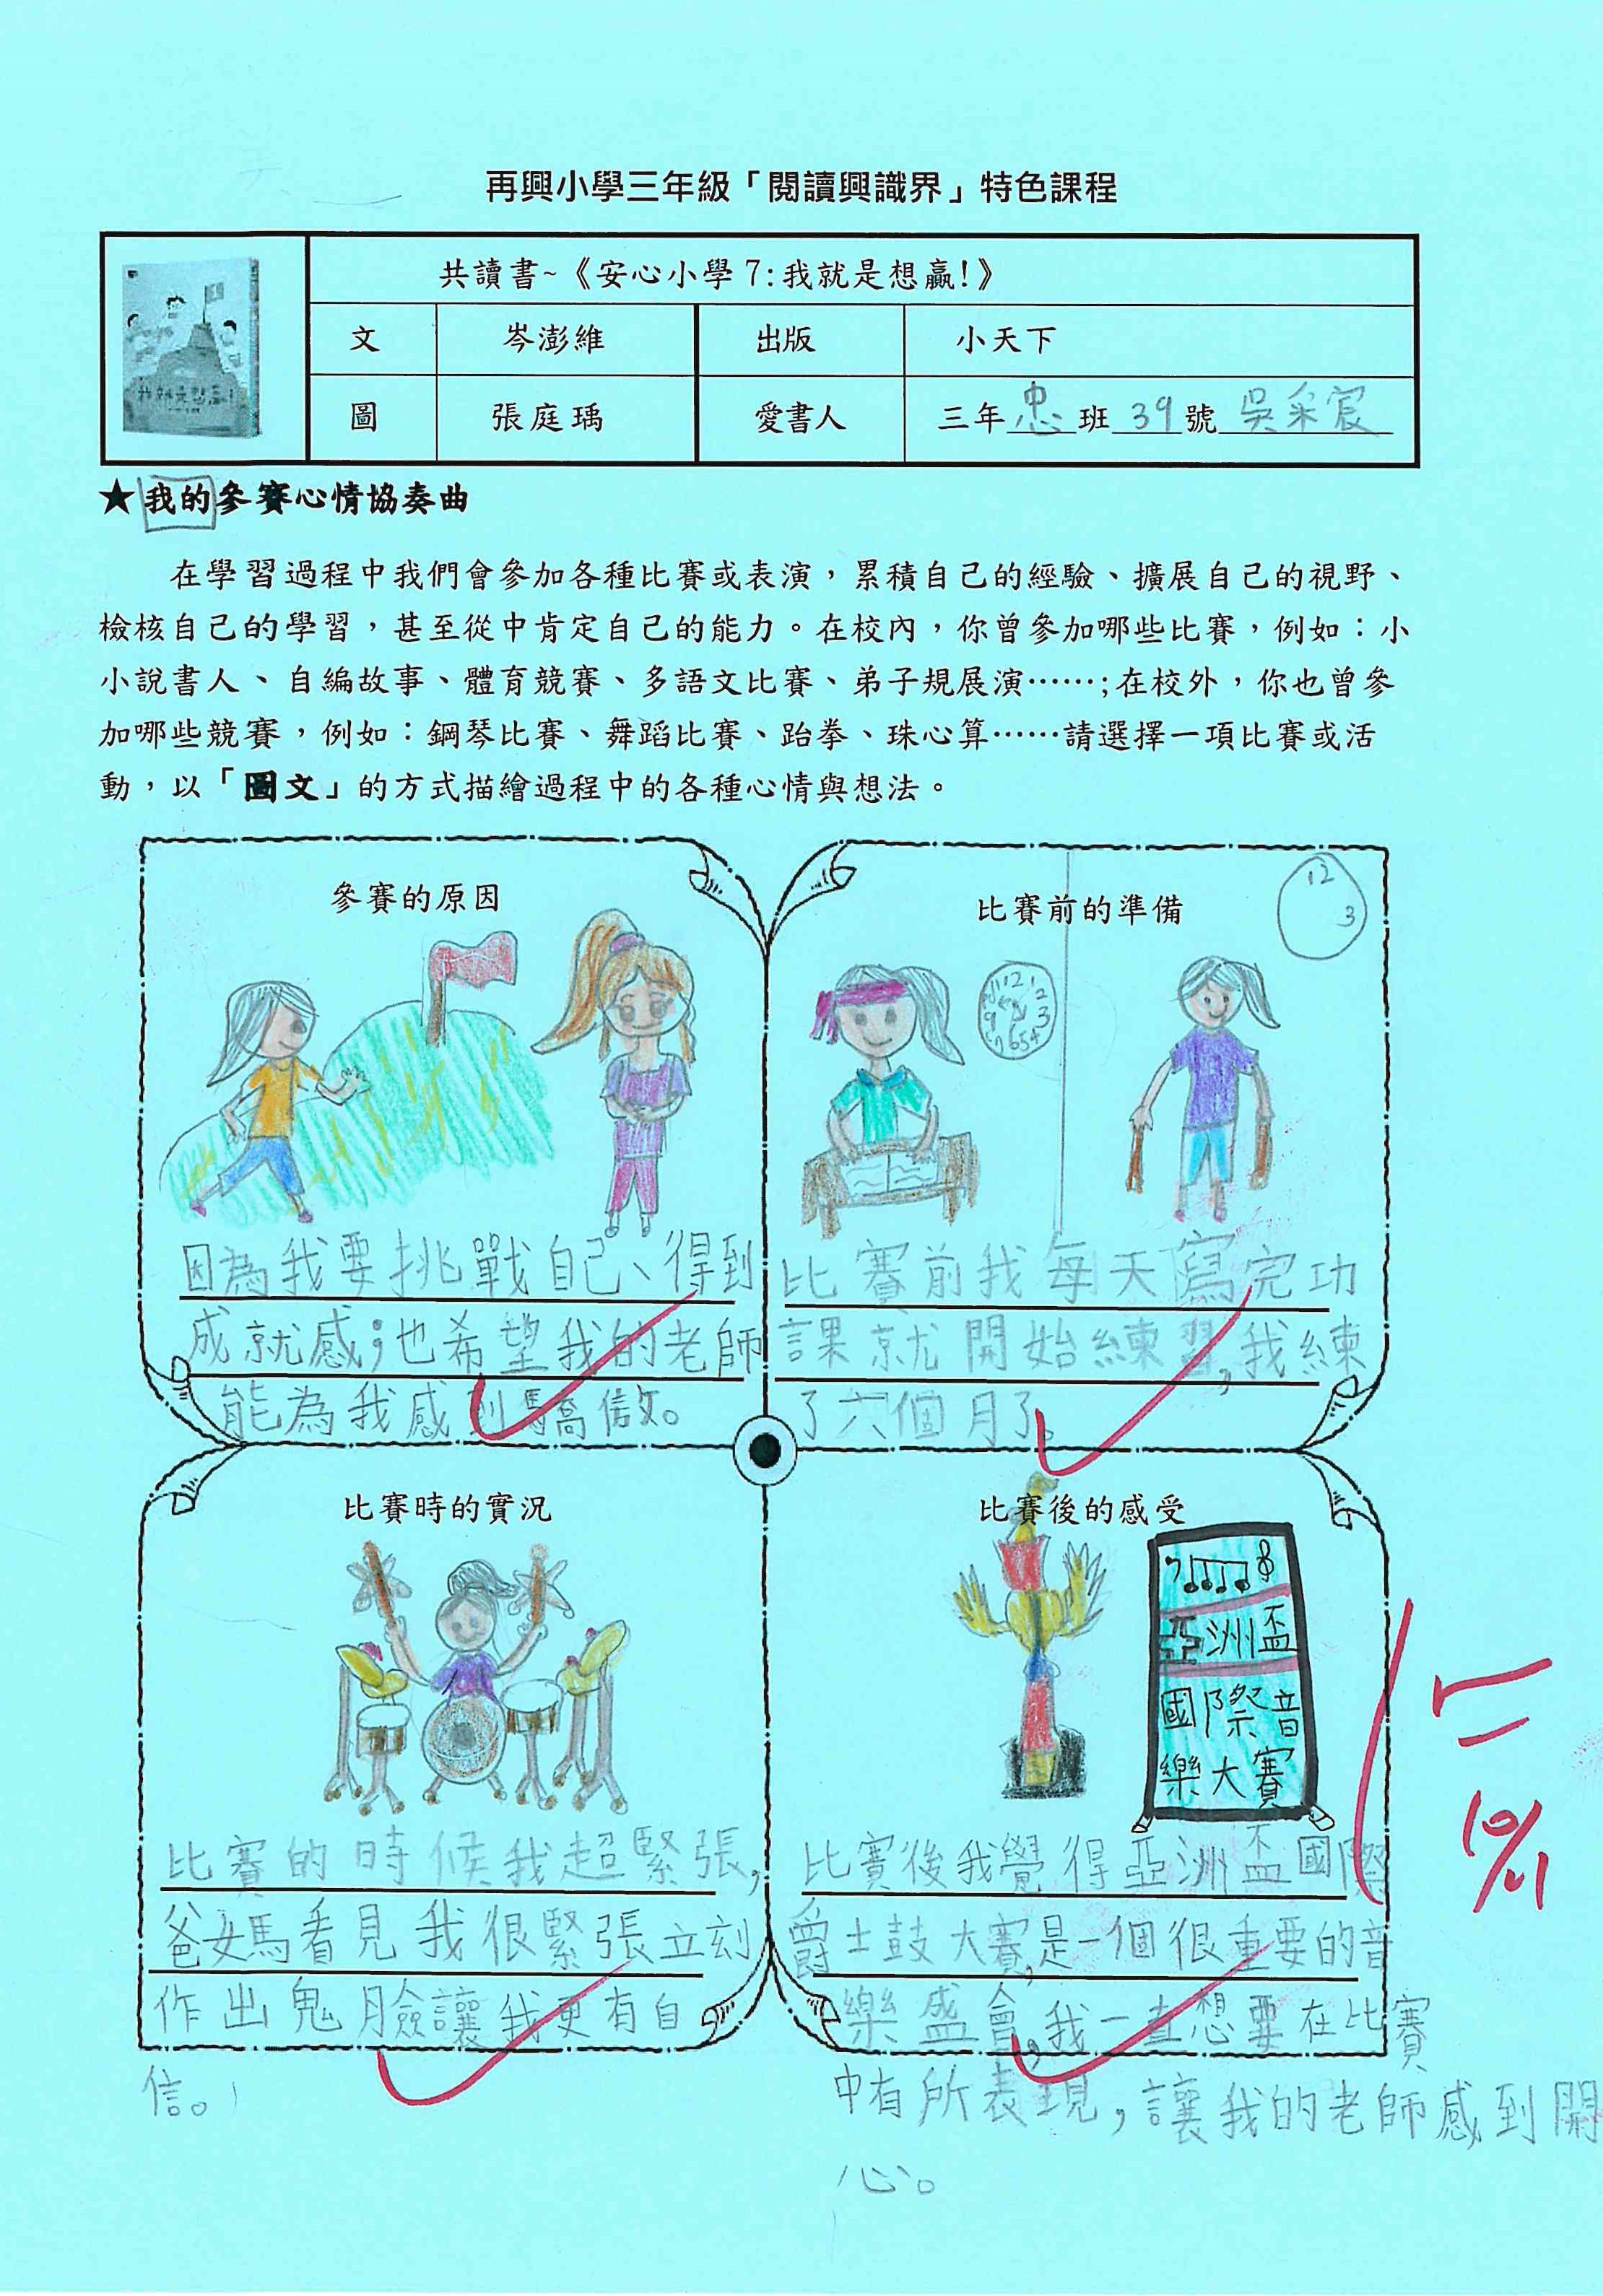 再興小學三年級「閱讀興識界」特色課程
我就是想贏!
共讀書~《安心小學7:我就是想贏!》
文 岑澎維 出版 小天下
圖 張庭瑀 愛書人 三年忠班39號吳采宸
★我的參賽心情協奏曲
在學習過程中我們會參加各種比賽或表演，累積自己的經驗、擴展自己的視野、
檢核自己的學習，甚至從中肯定自己的能力。在校內，你曾參加哪些比賽，例如：小
小說書人、自編故事、體育競賽、多語文比賽、弟子規展演……;在校外，你也曾參
加哪些競賽，例如：鋼琴比賽、舞蹈比賽、跆拳、珠心算……請選擇一項比賽或活
動，以「圖文」的方式描繪過程中的各種心情與想法。
參賽的原因
因為我要挑戰自己、得到
成就感；也希望我的老師
能為我感到驕傲。
比賽前的準備
12
3
比賽前我每天寫完功
課就開始練習，我練
了六個月了。
比賽時的實況
比賽的時候我超緊張，
爸媽看見我很緊張立刻
作出鬼臉讓我更有自
信。
比賽後的感受
亞洲盃
國際音
樂大賽
比賽後我覺得亞洲盃國際
爵士鼓大賽，是一個很重要的音
樂盛會，我一直想要在比賽
中有所表現，讓我的老師感到開
心。
10/21